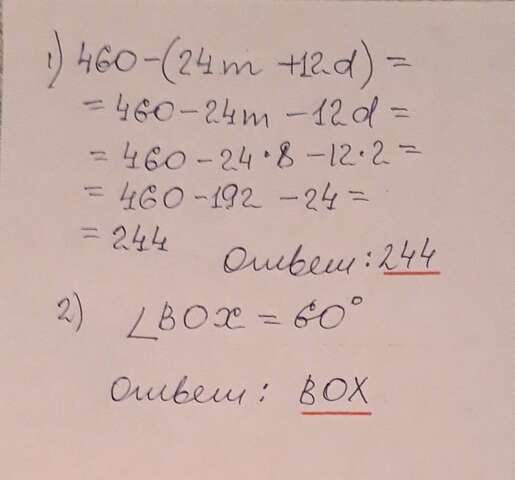 1) 460-(24m +12d) =
= 460-24m -12d =
= 460-24·8 -12·2 =
= 460-192 -24 =
= 244
Ответ: 244
2) ∠BOX = 60°
Ответ: BOX